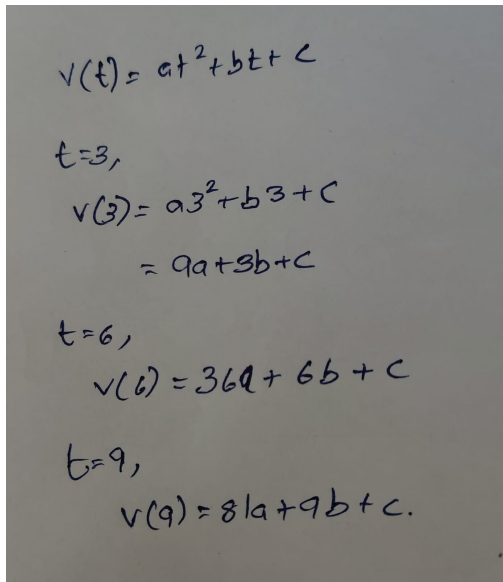 v(t) = at²+bt+c
t=3,
v(3) = a3²+b3+c
= 9a+3b+c
t=6,
v(6) = 36a+6b+c
t=9,
v(9) = 81a+9b+c.